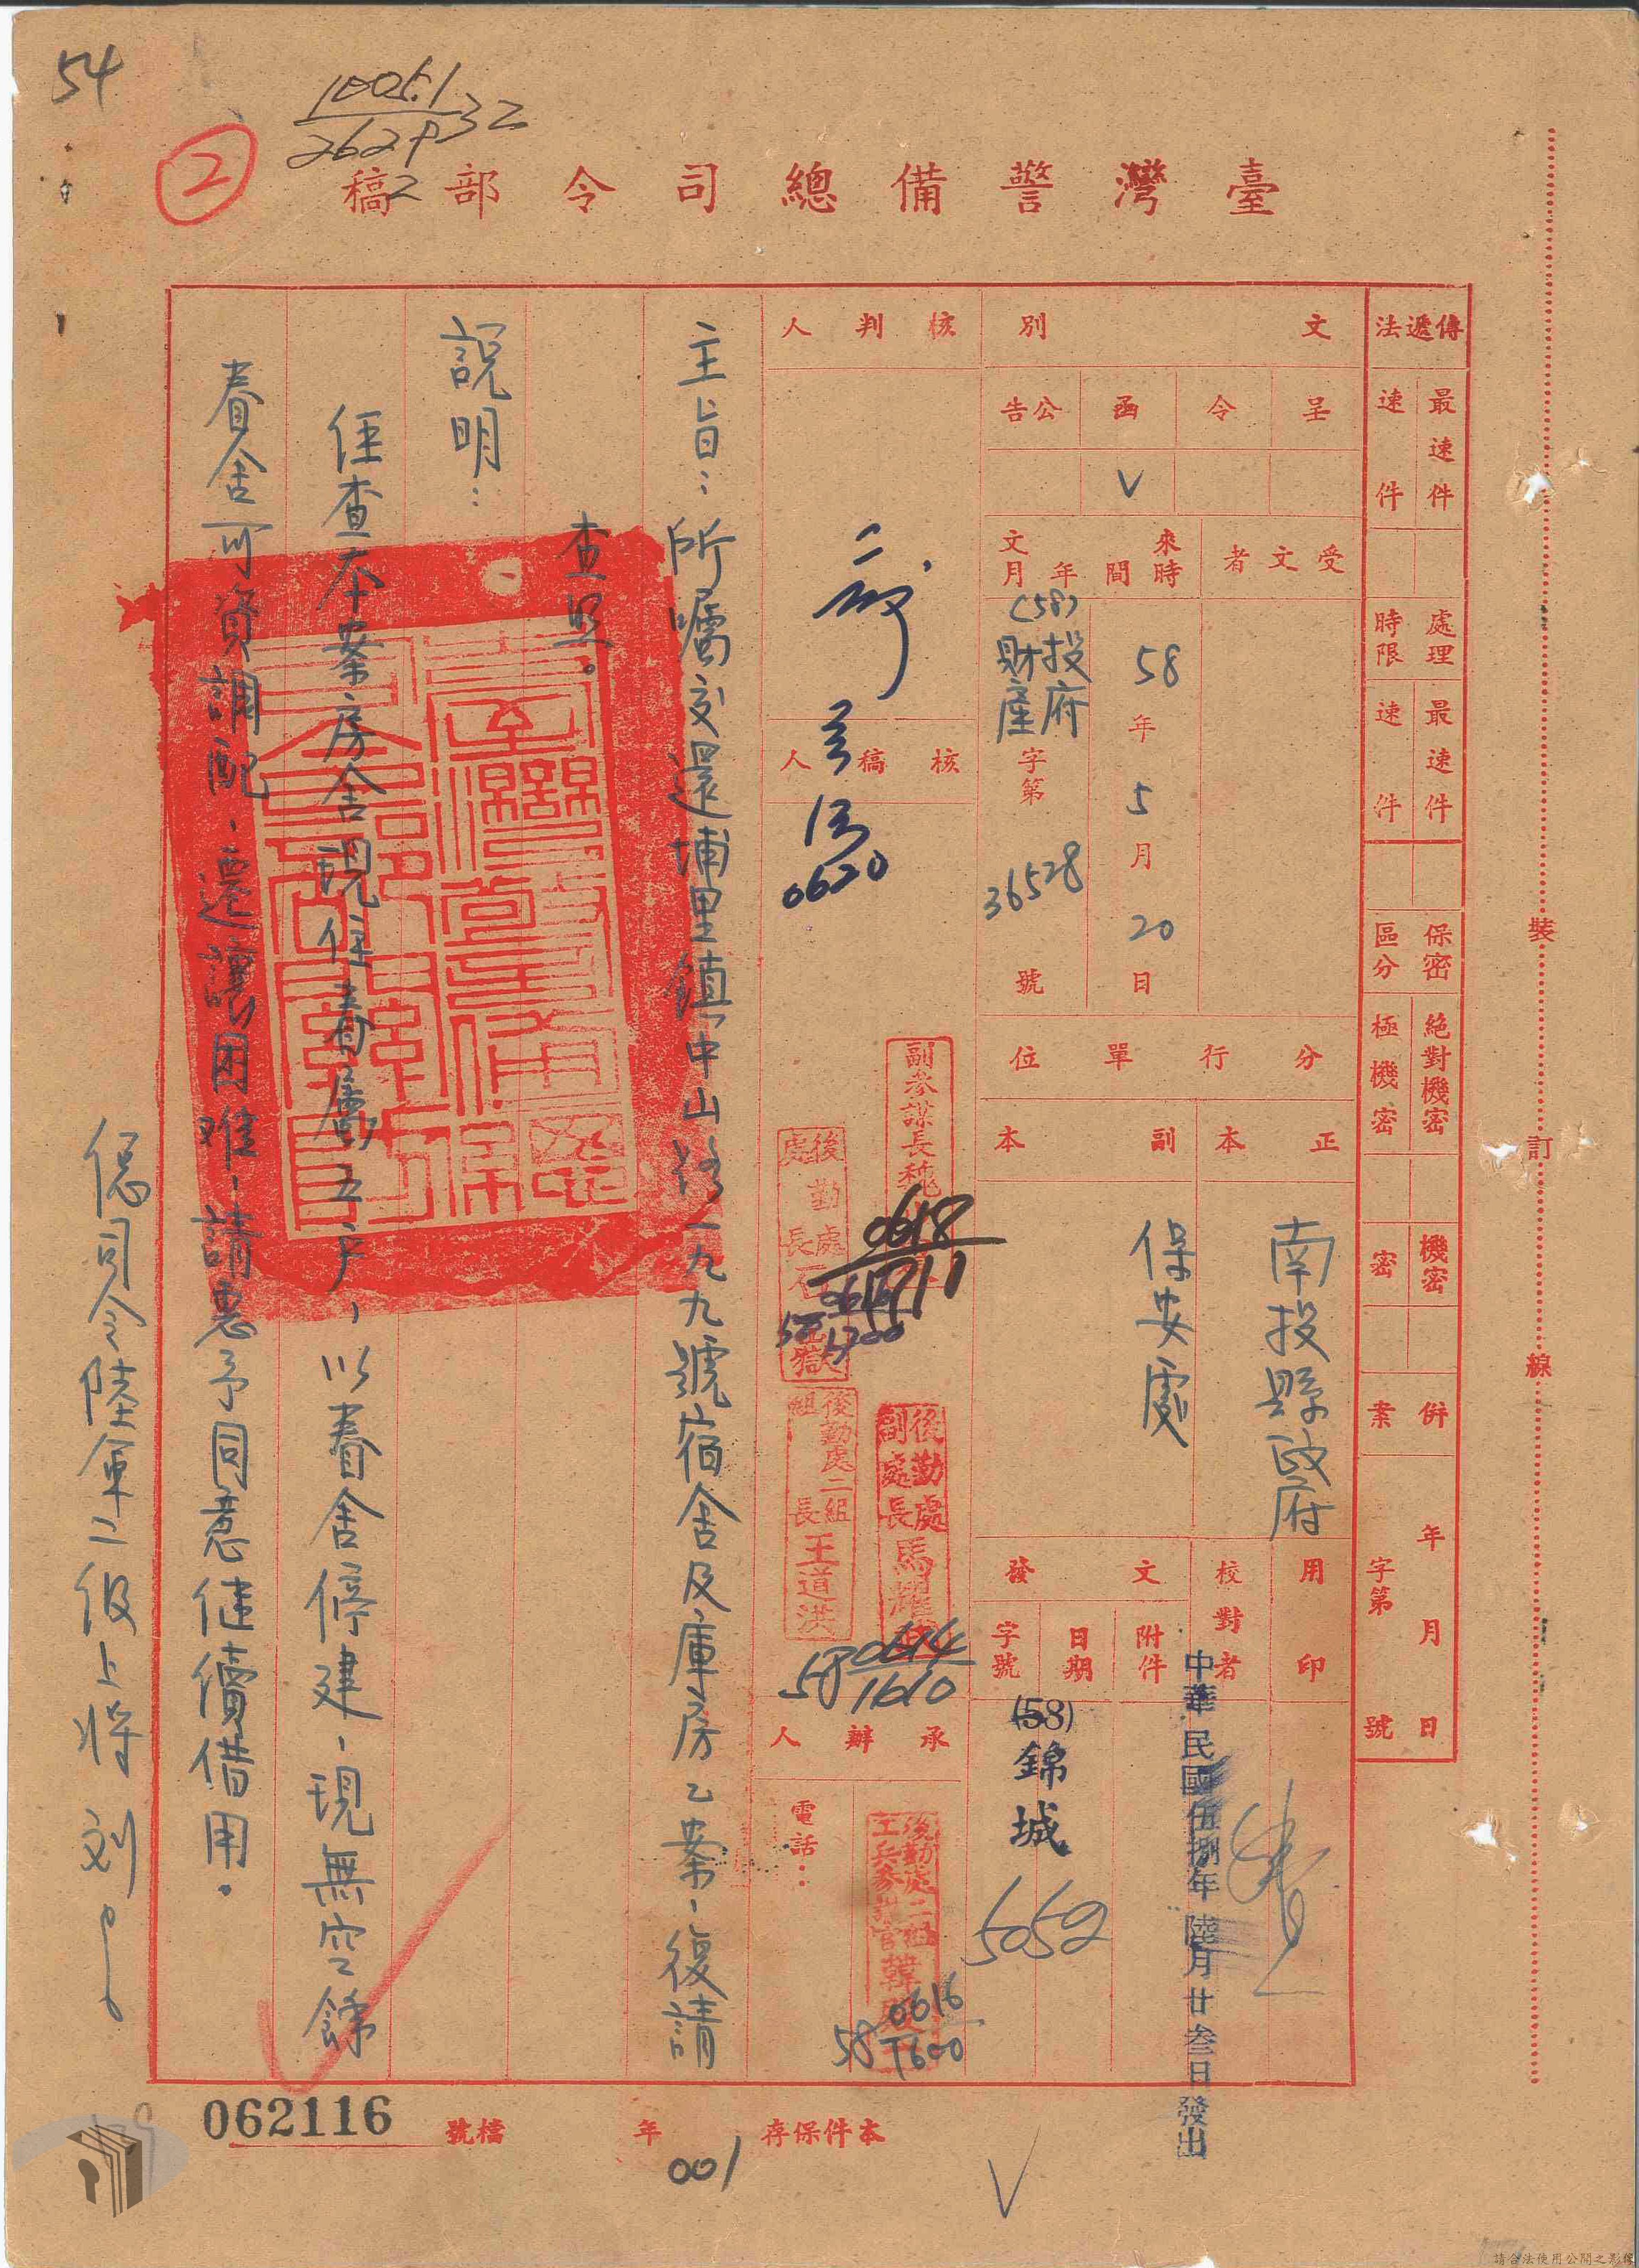 54
②
1005.1
2629
32
2
臺灣警備總司令部稿
傳遞法
最速件
速件
處理時限
最速件
速件
保密區分
絕對機密
極機密
機密
密
併案
年月日
字第號
文別
呈
令
函
公告
V
受文者
來文時間
年月
58年5月20日
(58)投府財產字第36528號
分行單位
正本
副本
南投縣政府
保安處
用印
校對者
發文
附件
日期
字號
中華民國伍捌年陸月廿叁日發出
(58)錦城
5052
核判人
核稿人
0620
副參謀長魏
0618
1711
後勤處處長石
1700
後勤處副處長馬
後勤處二組組長王道洪
58 0614
1610
承辦人
電話：
後勤處二組工兵參謀官韓
58 0616
1600
主旨：所囑交還埔里鎮中山路一九九號宿舍及庫房乙案，復請
查照。
說明：
經查本案房舍現住眷屬五戶，以眷舍停建，現無空餘
眷舍可資調配，遷讓困難，請惠予同意繼續借用。
總司令陸軍二級上將 刘
本件保存
年
檔號
062116
001
V
裝
訂
線
請合法使用公開之影像